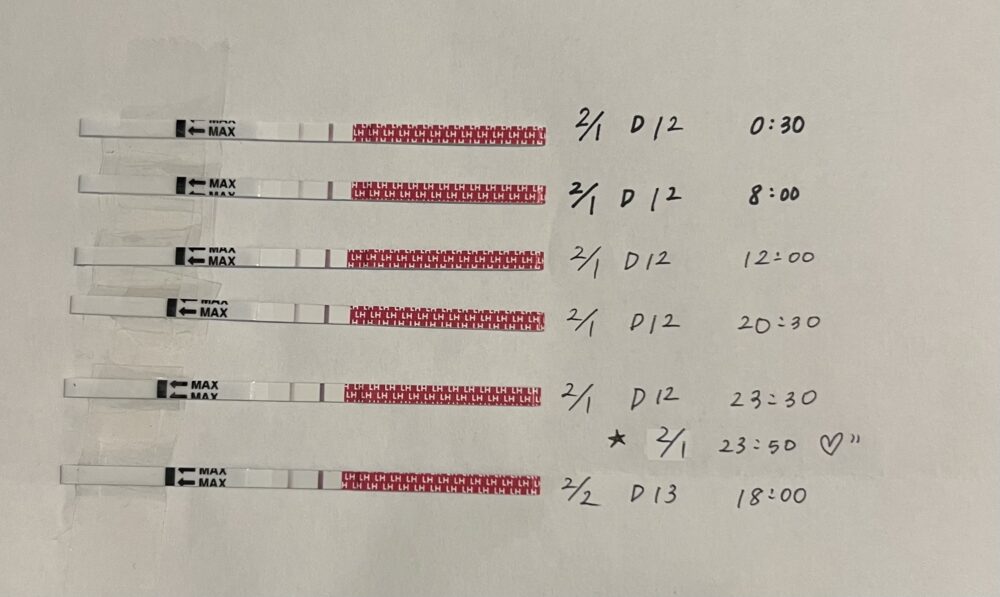 MAX LH LH LH LH LH LH LH LH LH LH LH LH 2/1 D12 0:30
MAX LH LH LH LH LH LH LH LH LH LH LH LH 2/1 D12 8:00
MAX LH LH LH LH LH LH LH LH LH LH LH LH 2/1 D12 12:00
MAX LH LH LH LH LH LH LH LH LH LH LH LH 2/1 D12 20:30
MAX LH LH LH LH LH LH LH LH LH LH LH LH 2/1 D12 23:30
★ 2/1 23:50 ♡"
MAX LH LH LH LH LH LH LH LH LH LH LH LH 2/2 D13 18:00